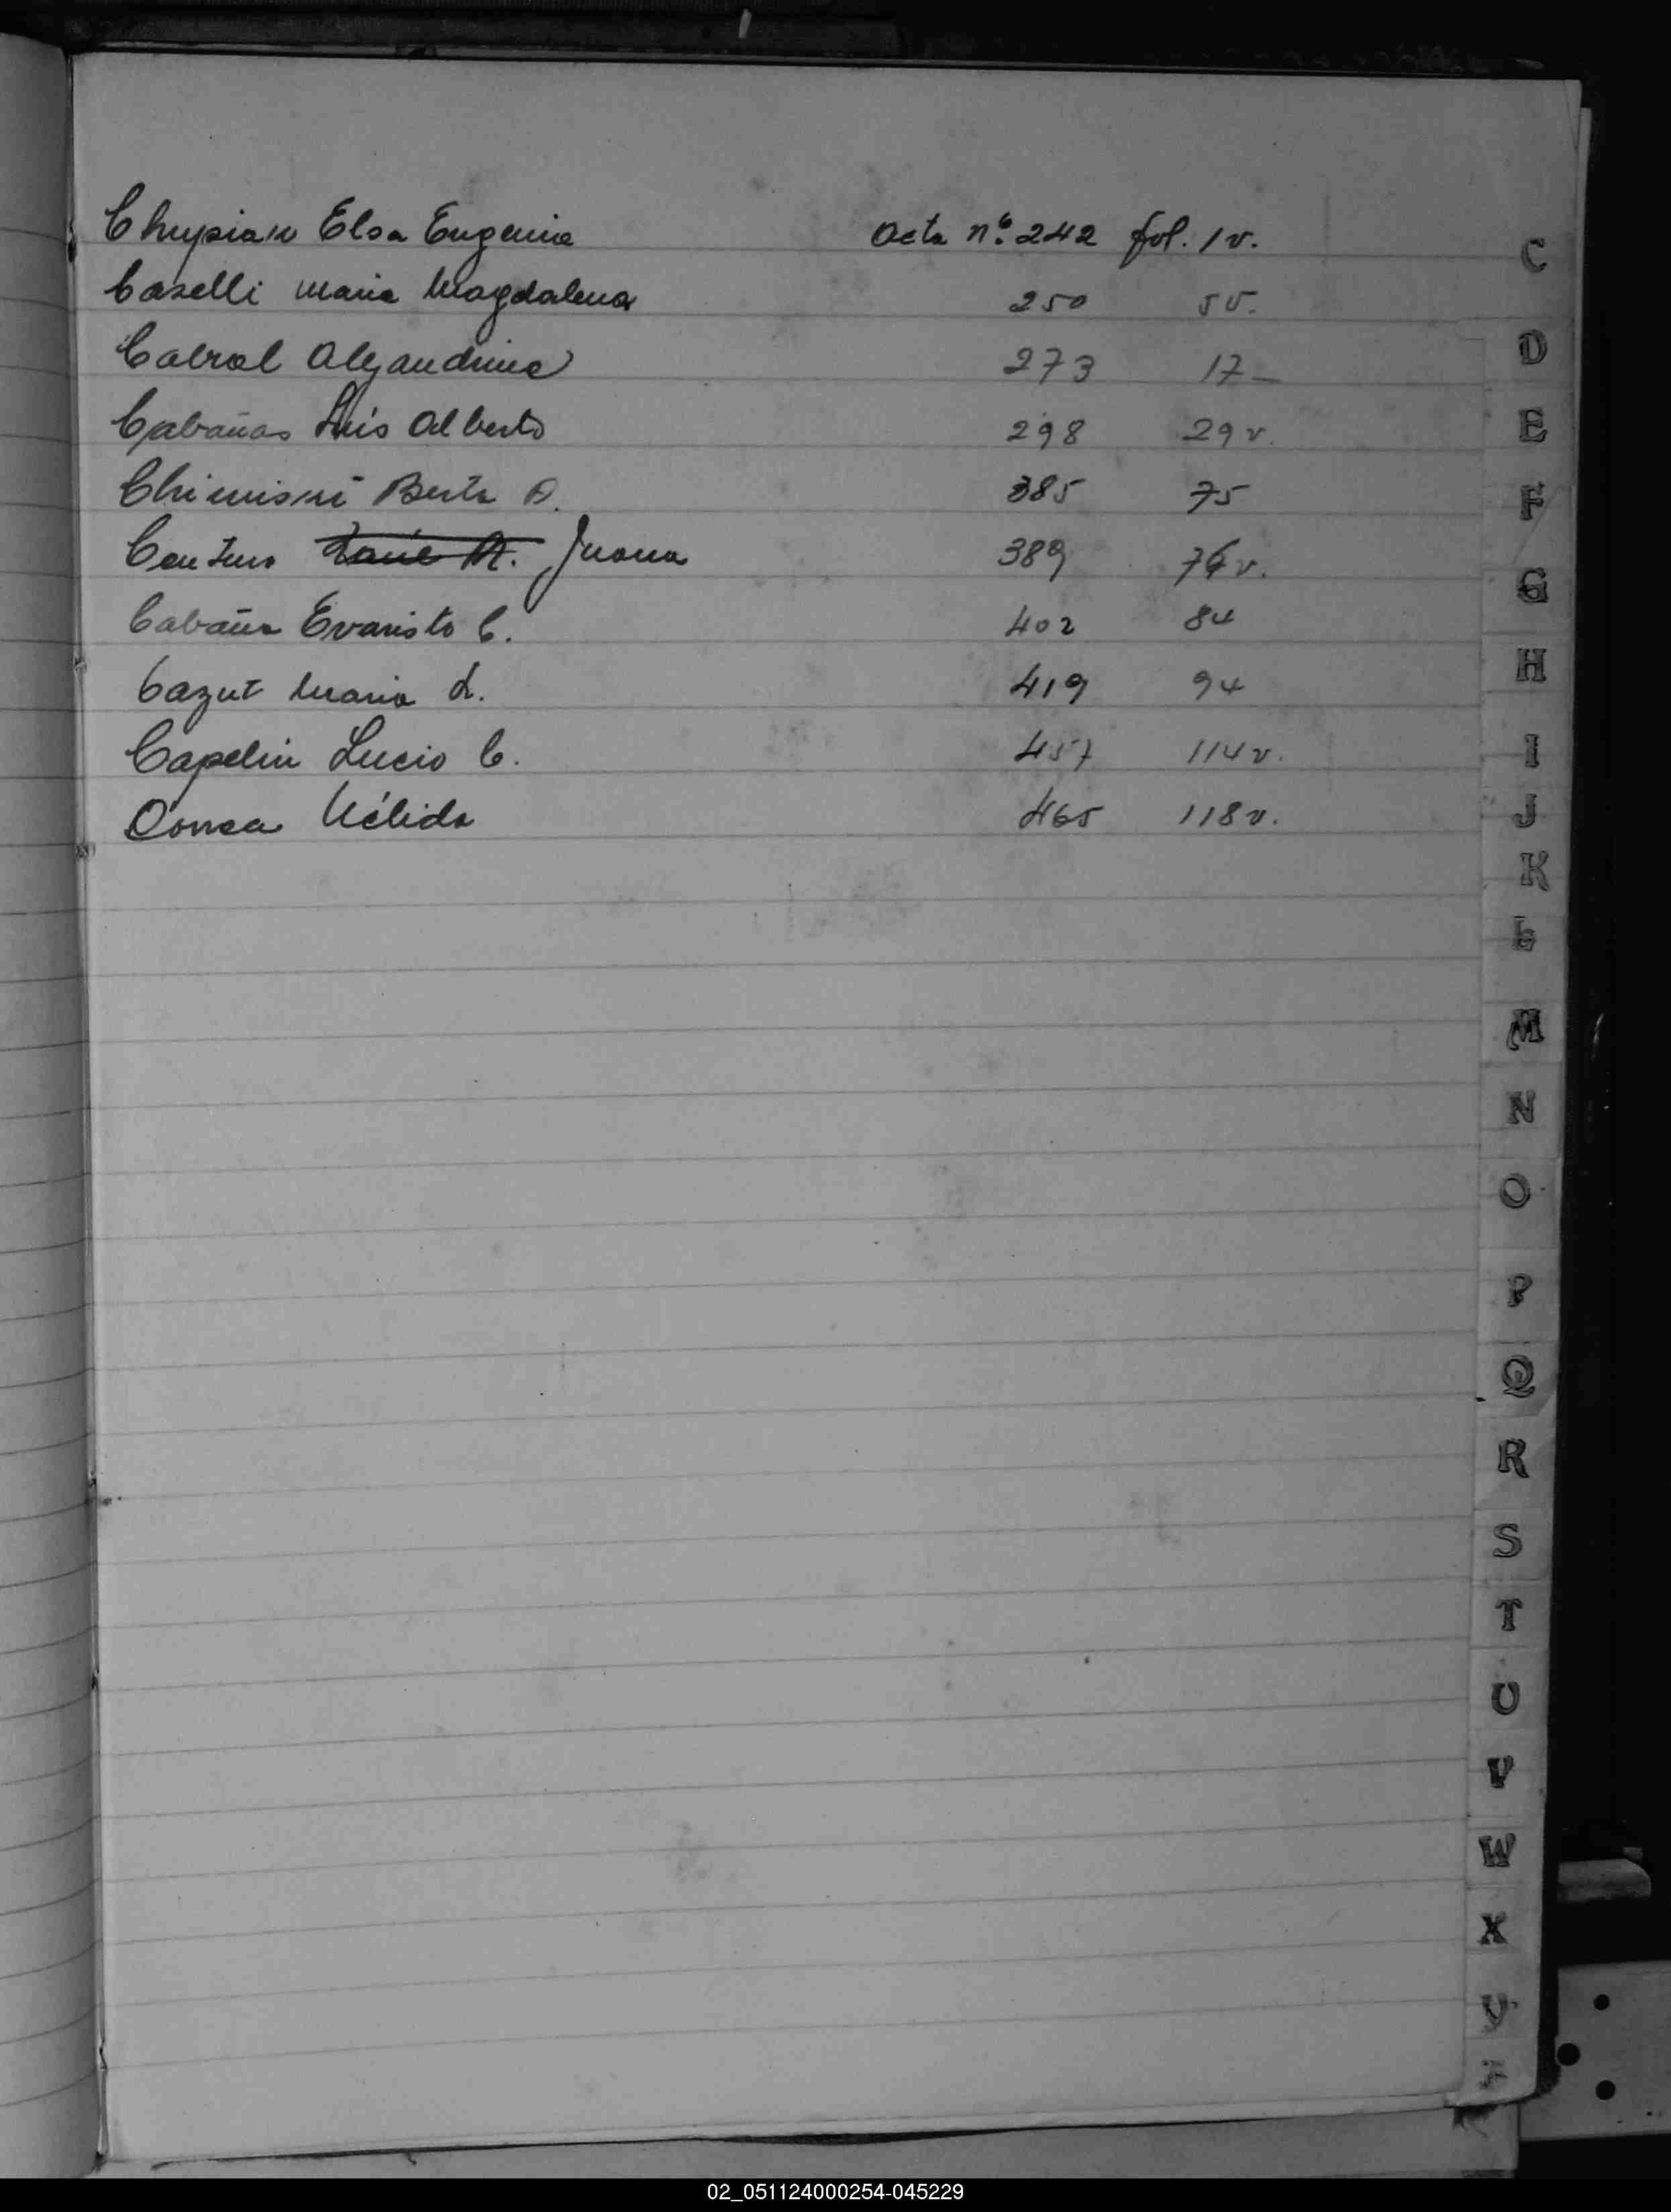 Chupiak Elsa Eugenia Acta nº 242 fol. 1 v.
Caselli Maria Magdalena 250 5 v.
Cabral Alejandrina 273 17 —
Cabañas Luis Alberto 298 29 v.
Berta A. 385 75
Centeno Juana 389 76 v.
Cabaña Evaristo C. 402 84
Cazut Maria L. 419 94
Capelin Lucio C. 457 114 v.
Nélida 465 118 v.
C
D
E
F
G
H
I
J
K
L
M
N
O
P
Q
R
S
T
U
V
W
X
Y
02_051124000254-045229